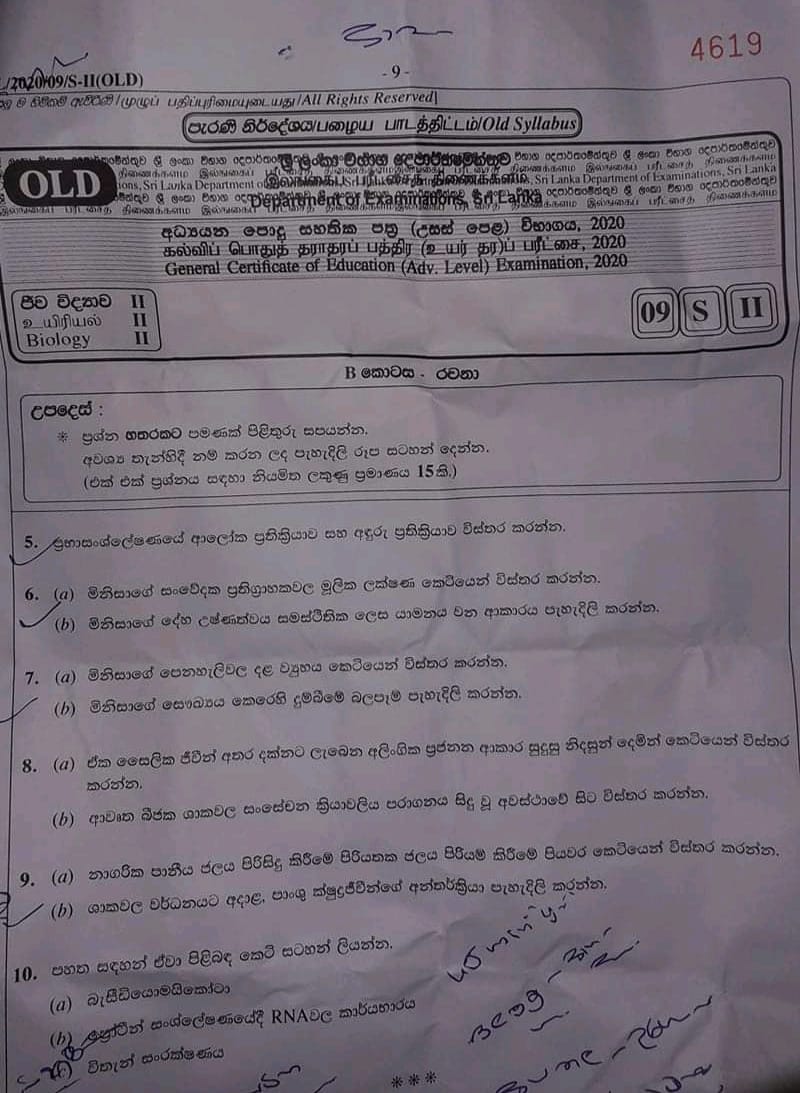 4619
/2020/09/S-II(OLD)
- 9 -
සියලු ම හිමිකම් ඇවිරිණි/முழுப் பதிப்புரிமையுடையது/All Rights Reserved]
පැරණි නිර්දේශය/பழைய பாடத்திட்டம்/Old Syllabus
OLD
ශ්‍රී ලංකා විභාග දෙපාර්තමේන්තුව
இலங்கைப் பரீட்சைத் திணைக்களம்
Department of Examinations, Sri Lanka
අධ්‍යයන පොදු සහතික පත්‍ර (උසස් පෙළ) විභාගය, 2020
கல்விப் பொதுத் தராதரப் பத்திர (உயர் தர)ப் பரீட்சை, 2020
General Certificate of Education (Adv. Level) Examination, 2020
ජීව විද්‍යාව II
உயிரியல் II
Biology II
09 S II
B කොටස - රචනා
උපදෙස් :
* ප්‍රශ්න හතරකට පමණක් පිළිතුරු සපයන්න.
අවශ්‍ය තැන්හිදී නම් කරන ලද පැහැදිලි රූප සටහන් දෙන්න.
(එක් එක් ප්‍රශ්නය සඳහා නියමිත ලකුණු ප්‍රමාණය 15 කි.)
5. ප්‍රභාසංශ්ලේෂණයේ ආලෝක ප්‍රතික්‍රියාව සහ අඳුරු ප්‍රතික්‍රියාව විස්තර කරන්න.
6. (a) මිනිසාගේ සංවේදක ප්‍රතිග්‍රාහකවල මූලික ලක්ෂණ කෙටියෙන් විස්තර කරන්න.
(b) මිනිසාගේ දේහ උෂ්ණත්වය සමස්ථිතික ලෙස යාමනය වන ආකාරය පැහැදිලි කරන්න.
7. (a) මිනිසාගේ පෙනහැලිවල දළ ව්‍යුහය කෙටියෙන් විස්තර කරන්න.
(b) මිනිසාගේ සෞඛ්‍යය කෙරෙහි දුම්බීමේ බලපෑම් පැහැදිලි කරන්න.
8. (a) ඒක සෛලික ජීවීන් අතර දක්නට ලැබෙන අලිංගික ප්‍රජනන ආකාර සුදුසු නිදසුන් දෙමින් කෙටියෙන් විස්තර
කරන්න.
(b) ආවෘත බීජක ශාකවල සංසේචන ක්‍රියාවලිය පරාගනය සිදු වූ අවස්ථාවේ සිට විස්තර කරන්න.
9. (a) නාගරික පානීය ජලය පිරිසිදු කිරීමේ පිරියතක ජලය පිරියම් කිරීමේ පියවර කෙටියෙන් විස්තර කරන්න.
(b) ශාකවල වර්ධනයට අදාළ, පාංශු ක්ෂුද්‍රජීවීන්ගේ අන්තර්ක්‍රියා පැහැදිලි කරන්න.
10. පහත සඳහන් ඒවා පිළිබඳ කෙටි සටහන් ලියන්න.
(a) බැසීඩියොමයිකෝටා
(b) ප්‍රෝටීන් සංශ්ලේෂණයේදී RNAවල කාර්යභාරය
(c) විතැන් සංරක්ෂණය
* * *